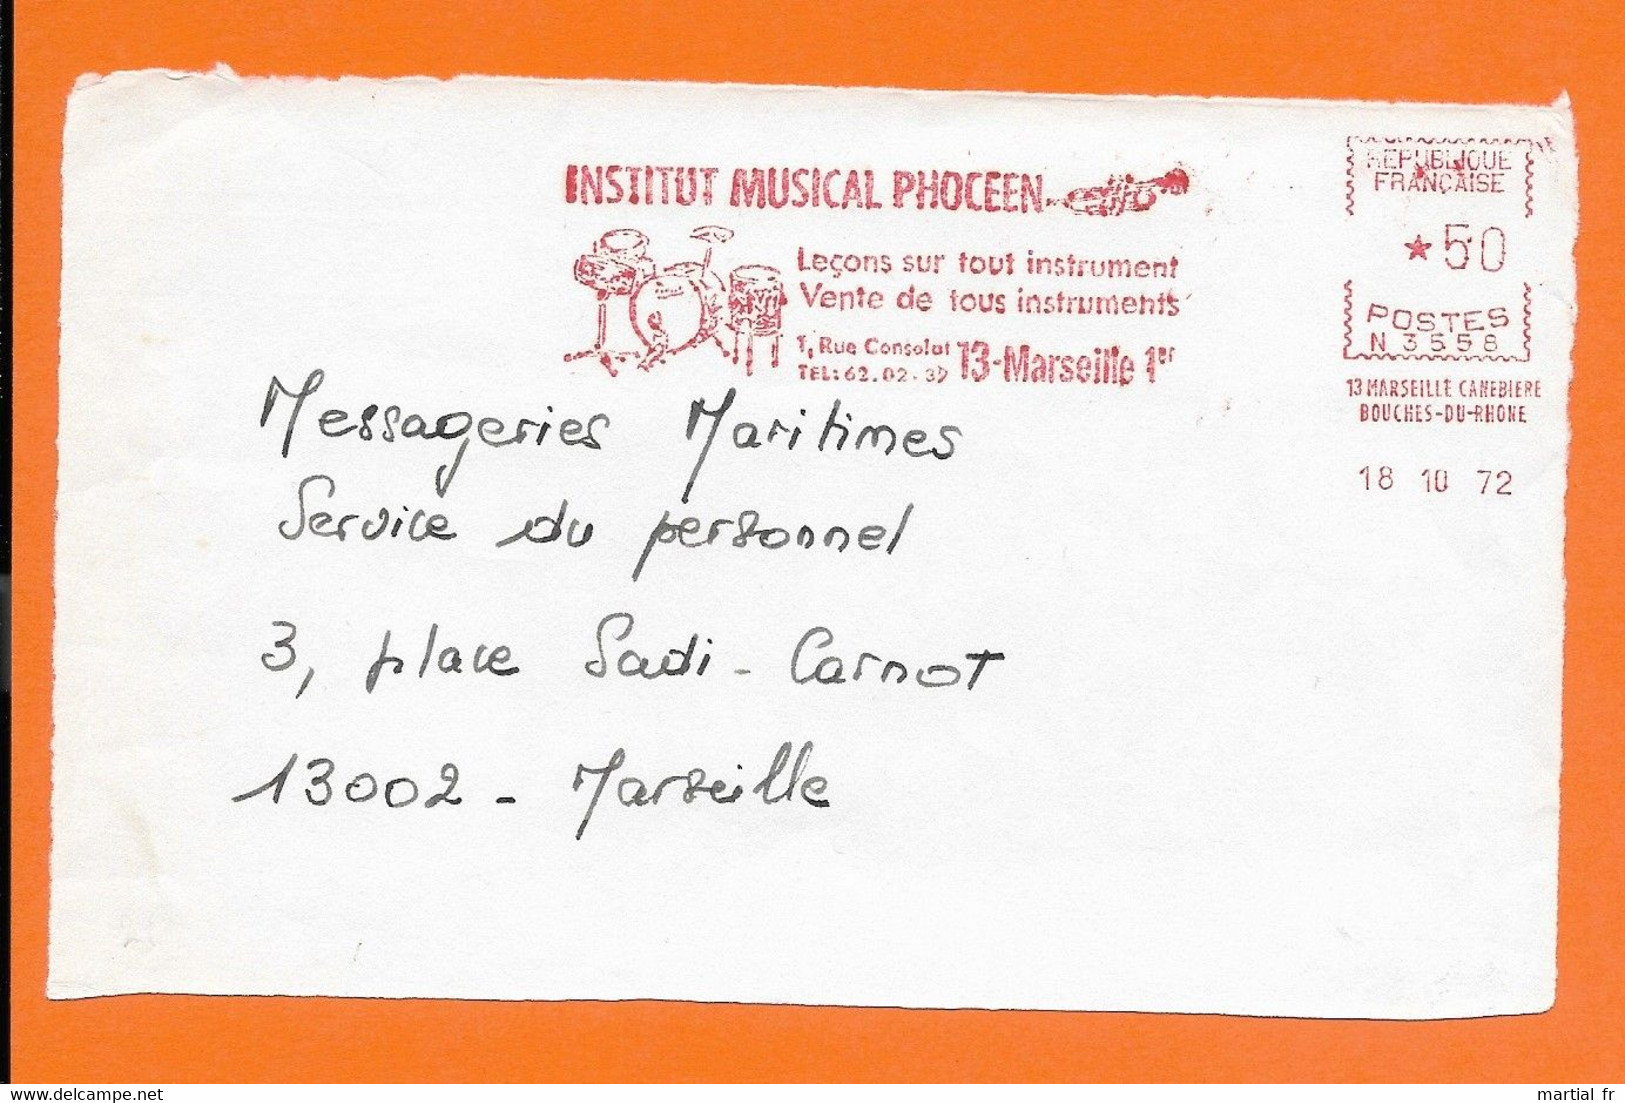 INSTITUT MUSICAL PHOCEEN
Leçons sur tout instrument
Vente de tous instruments
1, Rue Consolat
TEL: 62.02.39
13-Marseille 1er
REPUBLIQUE
FRANÇAISE
★50
POSTES
N 3558
13 MARSEILLE CANEBIERE
BOUCHES-DU-RHONE
18 10 72
Messageries Maritimes
Service du personnel
3, place Sadi-Carnot
13002 - Marseille
martial fr